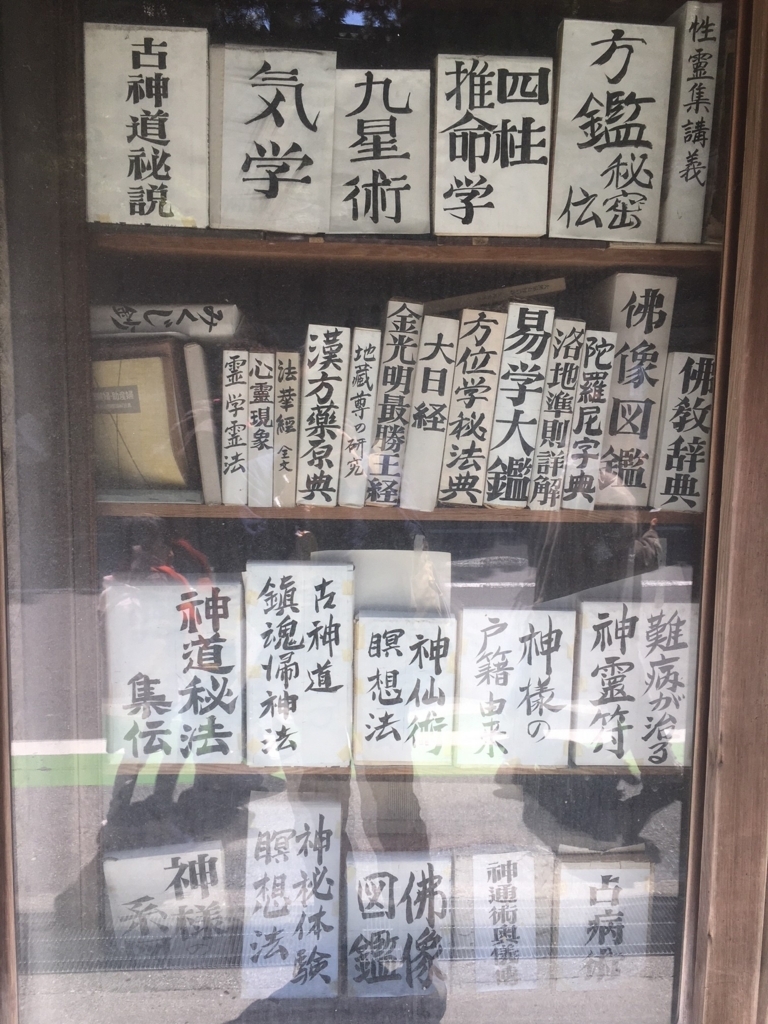 古神道秘説
気学
九星術
四柱
推命学
方鑑
秘密
伝
性霊集講義
みくじ
霊学霊法
心霊現象
法華経 全文
漢方薬原典
地蔵尊の研究
金光明最勝王経
大日経
方位学秘法典
易学大鑑
洛地準則詳解
陀羅尼字典
佛像図鑑
佛教辞典
神道秘法
集伝
古神道
鎮魂帰神法
神仙術
瞑想法
神様の
戸籍由来
難病が治る
神霊符
神様
神秘体験
瞑想法
佛像
図鑑
神通術奥儀
占病術